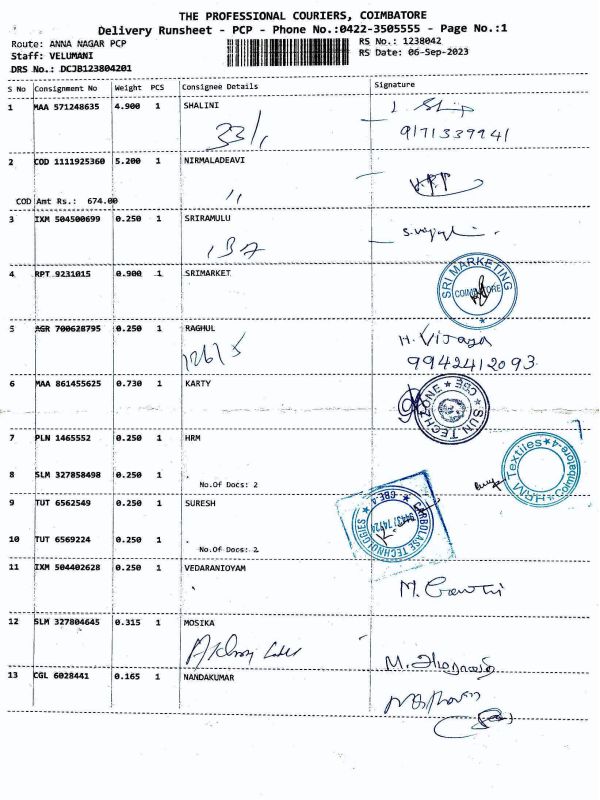 THE PROFESSIONAL COURIERS, COIMBATORE
Delivery Runsheet - PCP - Phone No.:0422-3505555 - Page No.:1
Route: ANNA NAGAR PCP
RS No.: 1238042
Staff: VELUMANI
RS Date: 06-Sep-2023
DRS No.: DCJB123804201
S No Consignment No Weight PCS Consignee Details Signature
1 MAA 571248635 4.900 1 SHALINI
33/1
9171339941
2 COD 1111925360 5.200 1 NIRMALADEAVI
COD Amt Rs.: 674.00
3 IXM 504500699 0.250 1 SRIRAMULU
4 RPT 9231015 0.900 1 SRIMARKET
SRI MARKETING
COIMBATORE
5 AGR 700628795 0.250 1 RAGHUL
H. Vijaya
9942412093
6 MAA 861455625 0.730 1 KARTY
SUN TECHZONE ★ CBE ★
7 PLN 1465552 0.250 1 HRM
HRM Textiles ★ Coimbatore-4
8 SLM 327858498 0.250 1 .
No.Of Docs: 2
9 TUT 6562549 0.250 1 SURESH
CARBOLASE TECHNOLOGIES ★ CBE-4 ★
10 TUT 6569224 0.250 1 .
No.Of Docs: 2
11 IXM 504402628 0.250 1 VEDARANIOYAM
12 SLM 327804645 0.315 1 MOSIKA
13 CGL 6028441 0.165 1 NANDAKUMAR